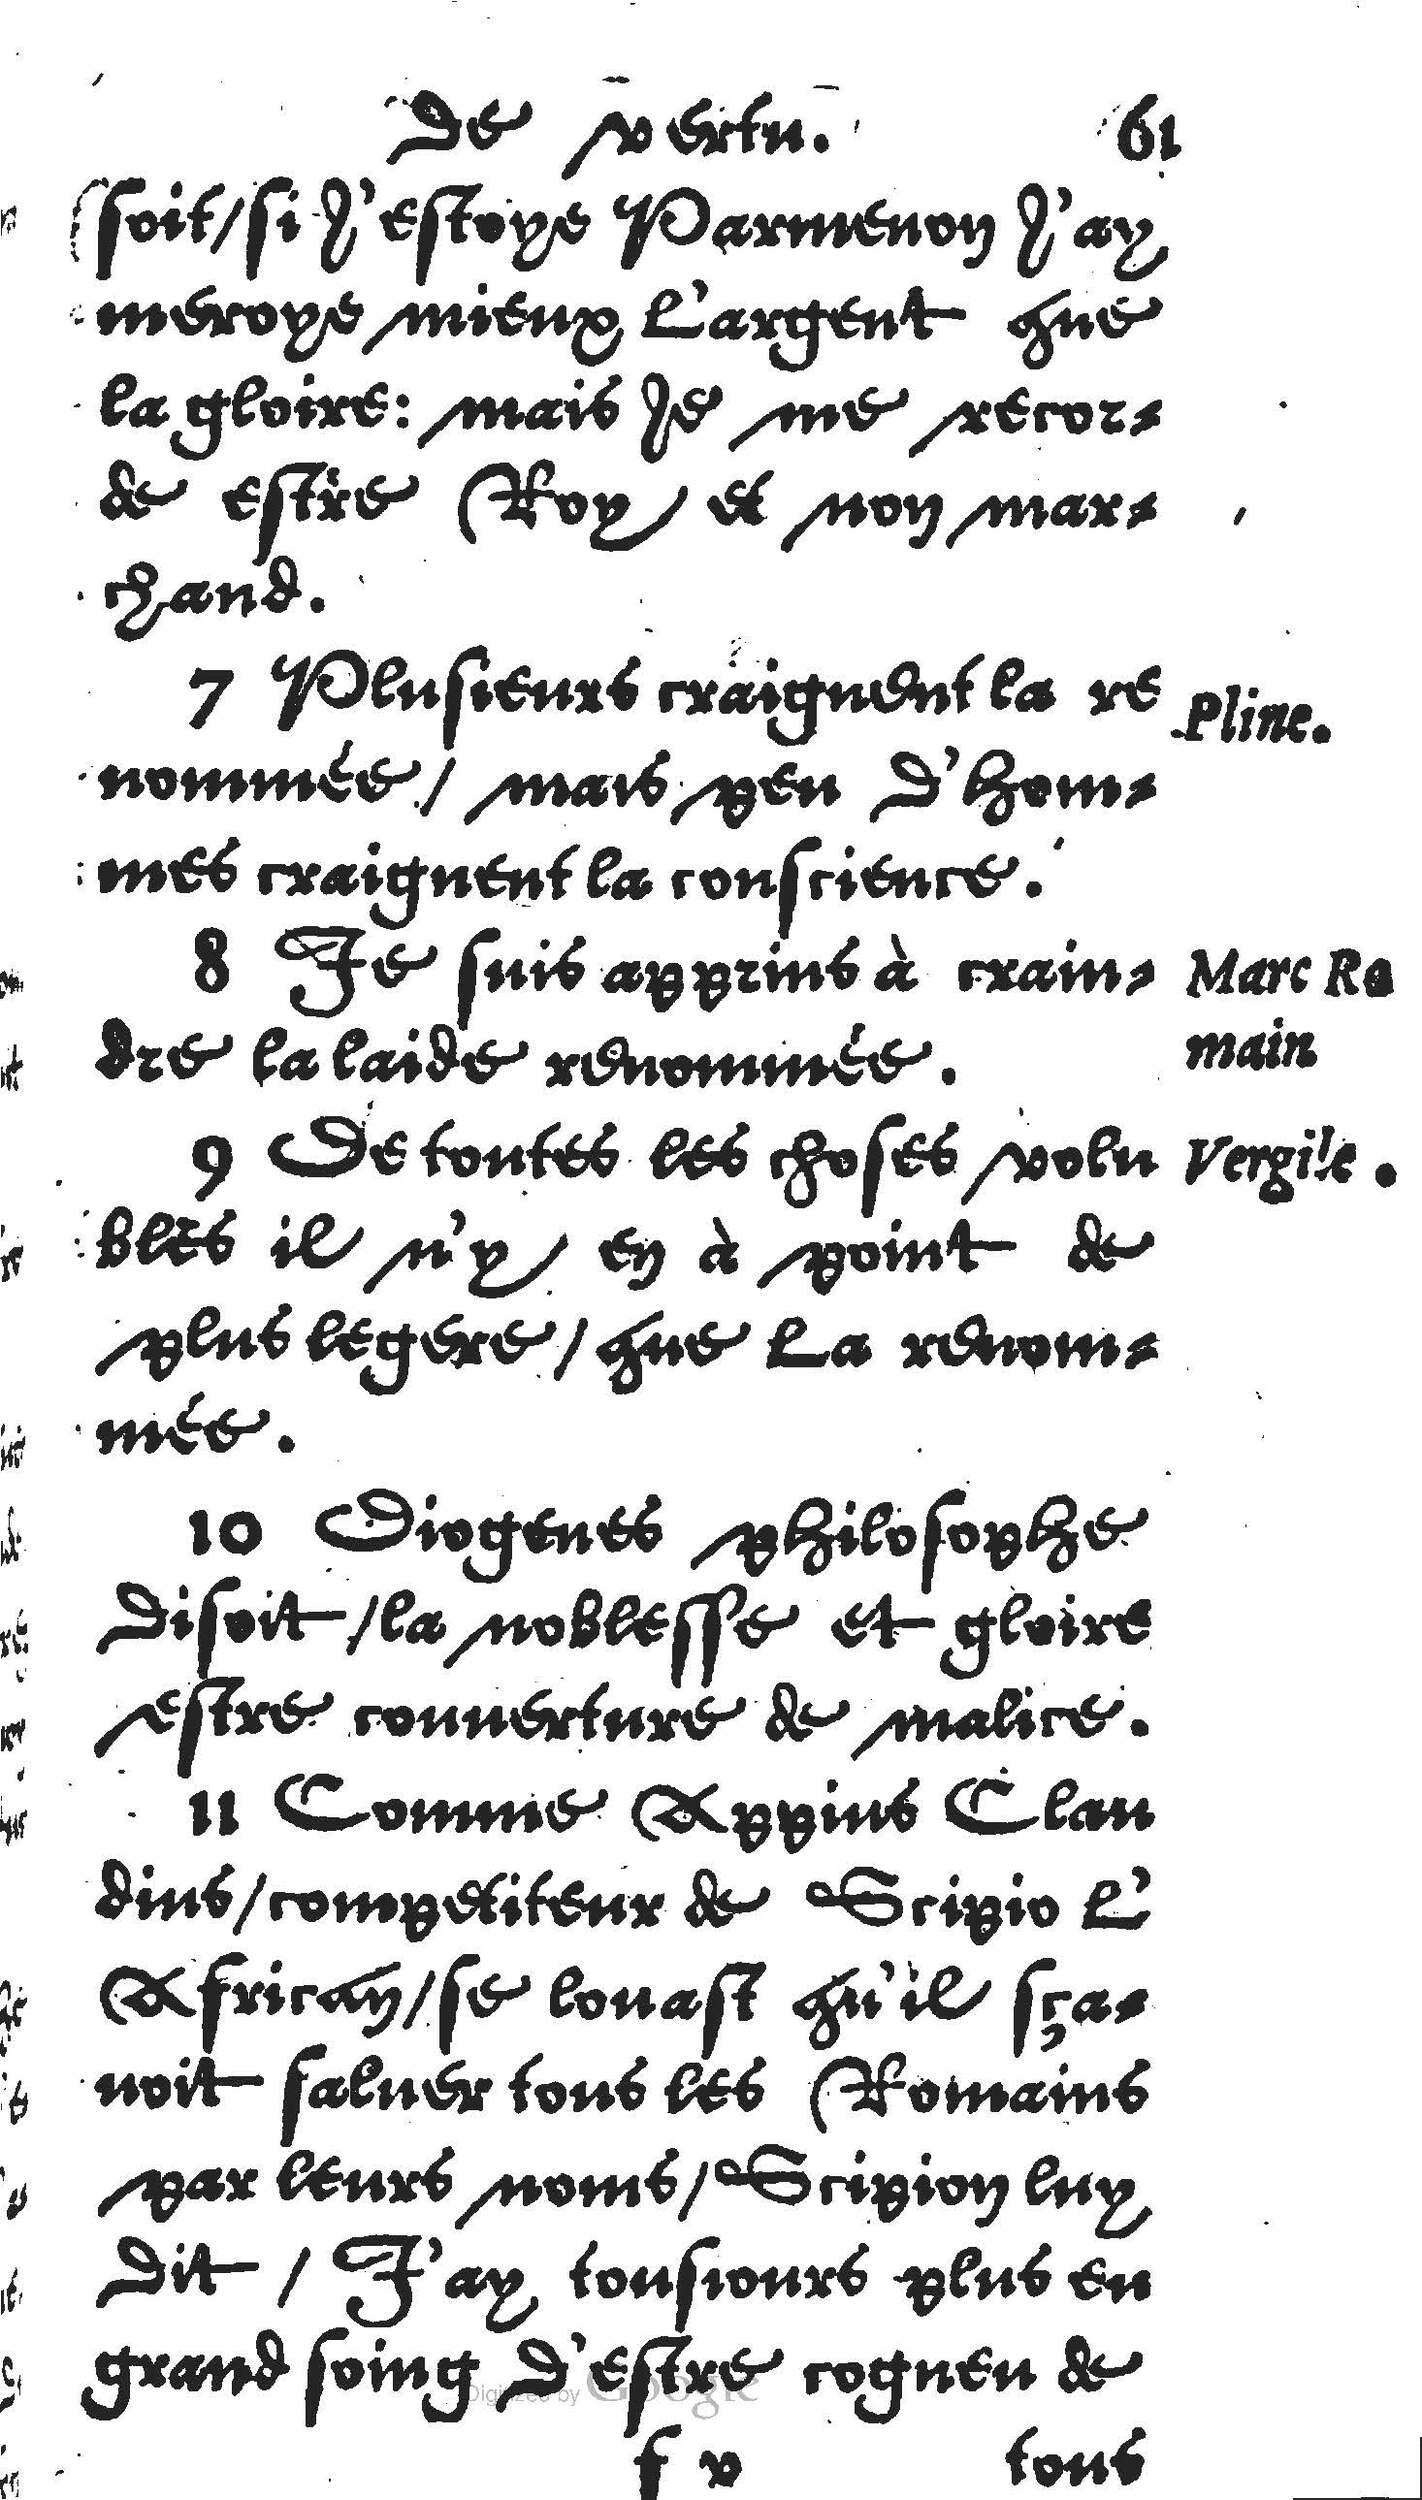 De vertu. 61
soit/si J'estoye Parmenon J'ay
meroye mieux L'argent que
la gloire: mais Je me recor-
de estre Roy/ et non mar-
chand.
7 Plusieurs craignent la re
Pline.
nommée/ mais peu d'hom-
mes craignent la conscience.
8 Je suis apprins à crain-
Marc Ro
dre la laide renommée.
main
9 De toutes les choses volu
Vergile.
bles il n'y/ en à point de
plus legere/ que La renom-
mée.
10 Diogenes philosophe
disoit/la noblesse et gloire
estre couuerture de malice.
11 Comme Appius Clau
dius/competiteur de Scipio L'
African/se louast qu'il sça-
uoit saluer tous les Romains
par leurs noms/Scipion luy
dit / J'ay tousiours plus eu
grand soing d'estre cogneu de
f v tous
Digitized by Google